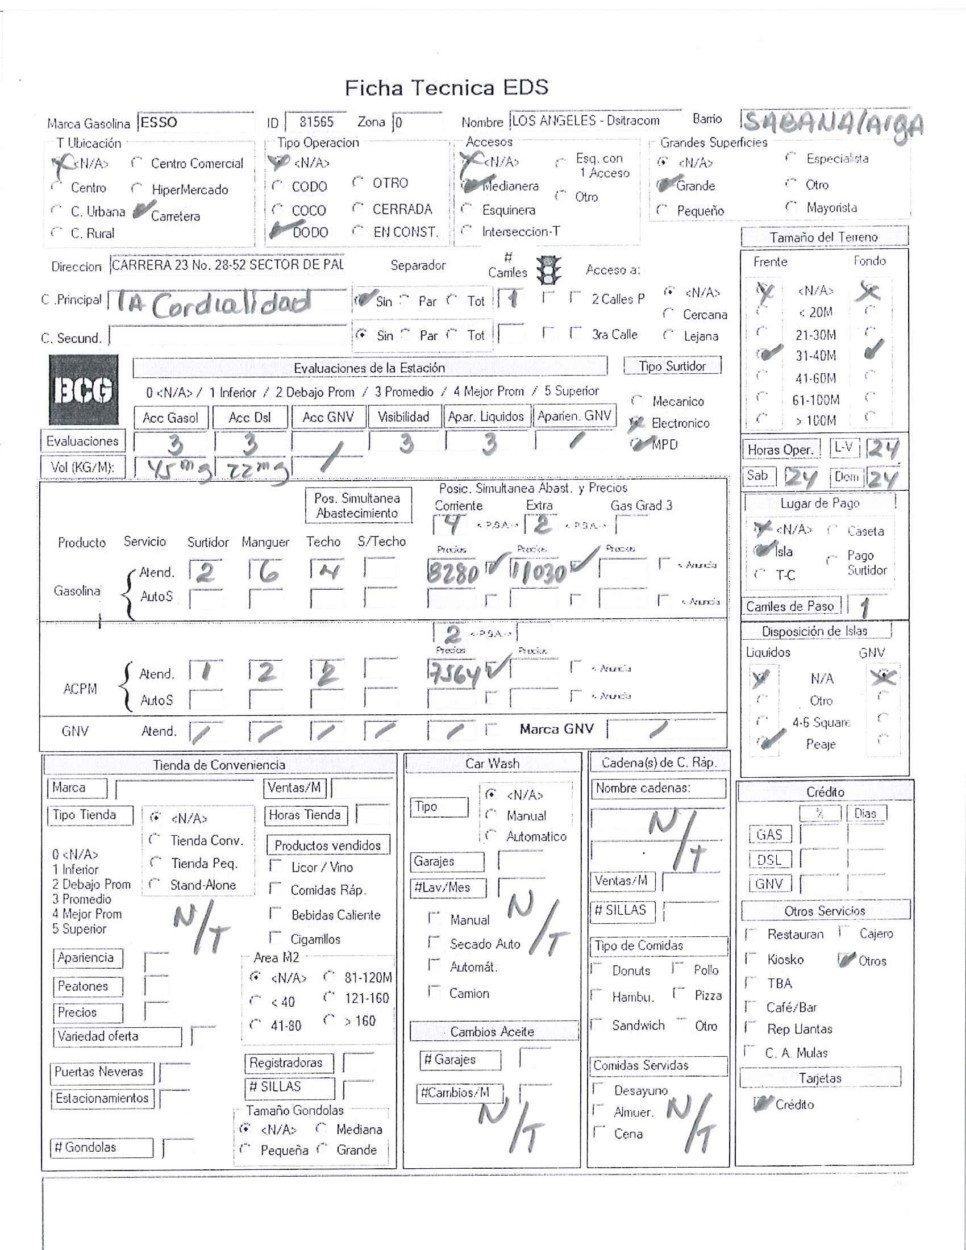 Ficha Tecnica EDS
Marca Gasolina ESSO ID 81565 Zona 0 Nombre LOS ANGELES - Dsitracom Barrio SABANA/ArgA
T Ubicación Tipo Operacion Accesos Grandes Superficies
<N/A> Centro Comercial <N/A> <N/A> Esq. con 1 Acceso <N/A> Especialista
Centro HiperMercado CODO OTRO Medianera Otro Grande Otro
C. Urbana Carretera COCO CERRADA Esquinera Pequeño Mayorista
C. Rural DODO EN CONST. Interseccion-T
Tamaño del Terreno
Direccion CARRERA 23 No. 28-52 SECTOR DE PAL Separador # Carriles Acceso a: Frente Fondo
C .Principal lA Cordialidad Sin Par Tot 1 2 Calles P <N/A> Cercana
C. Secund. Sin Par Tot 3ra Calle Lejana
<N/A>
< 20M
21-30M
31-40M
41-60M
61-100M
> 100M
BCG
Evaluaciones de la Estación Tipo Surtidor
0 <N/A> / 1 Inferior / 2 Debajo Prom / 3 Promedio / 4 Mejor Prom / 5 Superior Mecanico
Acc Gasol Acc Dsl Acc GNV Visibilidad Apar. Liquidos Aparien. GNV Electronico
Evaluaciones 3 3 / 3 3 / MPD
Vol (KG/M): 45mg 22mg /
Horas Oper. L-V 24
Sab 24 Dom 24
Pos. Simultanea Abastecimiento Posic. Simultanea Abast. y Precios
Corriente Extra Gas Grad 3
4 < P.S.A.-> 2 < P.S.A.->
Producto Servicio Surtidor Manguer Techo S/Techo Precios Precios Precios
Gasolina Atend. 2 6 4 8280 11030 < Anuncia
AutoS < Anuncia
Lugar de Pago
<N/A> Caseta
Isla Pago Surtidor
T-C
Carriles de Paso 1
2 < P.S.A.->
Precios Precios
ACPM Atend. 1 2 2 7564 < Anuncia
AutoS < Anuncia
GNV Atend. / / / / / Marca GNV /
Disposición de Islas
Liquidos GNV
N/A
Otro
4-6 Square
Peaje
Tienda de Conveniencia
Marca Ventas/M
Tipo Tienda <N/A> Horas Tienda
Tienda Conv. Productos vendidos
0 <N/A>
1 Inferior Tienda Peq. Licor / Vino
2 Debajo Prom Stand-Alone Comidas Ráp.
3 Promedio
4 Mejor Prom N/T Bebidas Caliente
5 Superior Cigarrillos
Apariencia Area M2
Peatones <N/A> 81-120M
Precios < 40 121-160
Variedad oferta 41-80 > 160
Puertas Neveras Registradoras
Estacionamientos # SILLAS
Tamaño Gondolas
<N/A> Mediana
# Gondolas Pequeña Grande
Car Wash
Tipo <N/A>
Manual
Automatico
Garajes
#Lav/Mes
Manual N/T
Secado Auto
Automát.
Camion
Cambios Aceite
# Garajes
#Cambios/M
N/T
Cadena(s) de C. Ráp.
Nombre cadenas:
N/T
Ventas/M
# SILLAS
Tipo de Comidas
Donuts Pollo
Hambu. Pizza
Sandwich Otro
Comidas Servidas
Desayuno
Almuer. N/T
Cena
Crédito
% Dias
GAS
DSL
GNV
Otros Servicios
Restauran Cajero
Kiosko Otros
TBA
Café/Bar
Rep Llantas
C. A. Mulas
Tarjetas
Crédito